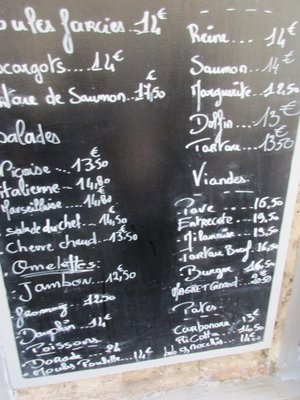 oules farcies 14€
scargots.... 14€
rtare de Saumon.. 17,50
Salades
Niçoise.... 13,50
italienne... 14,80
Marseillaise.... 14,80
salade du chef. 14,50
Chevre chaud... 13,50
Omelettes
Jambon... 12,50
fromage 12,50
Dauphin 14€
Poissons
Dorade 24
Moules Poulette.. 14€
Reine.... 14€
Saumon... 14€
Marguerite.. 12,50
Dolfin... 13€
Tartare... 13,50
Viandes
Pave.... 16,50
Entrecote... 19,50
Milanaise... 19,50
Tartare Bœuf. 16,50
Burger.... 16,50
Magret Canard. 20,50
Pates
Carbonara. 13€
Ricotta.. 14,50
gnocchis.. 14,50